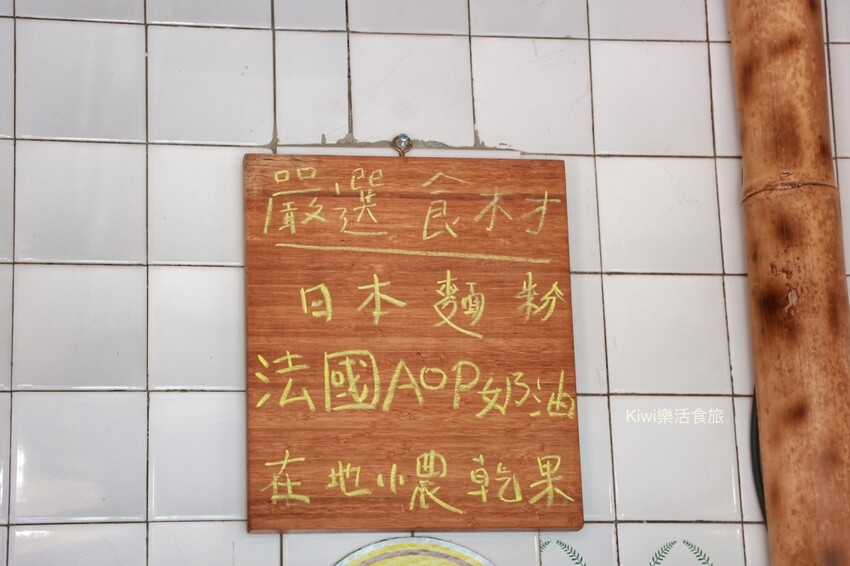 嚴選食材
日本麵粉
法國AOP奶油
Kiwi樂活食旅
在地小農乾果